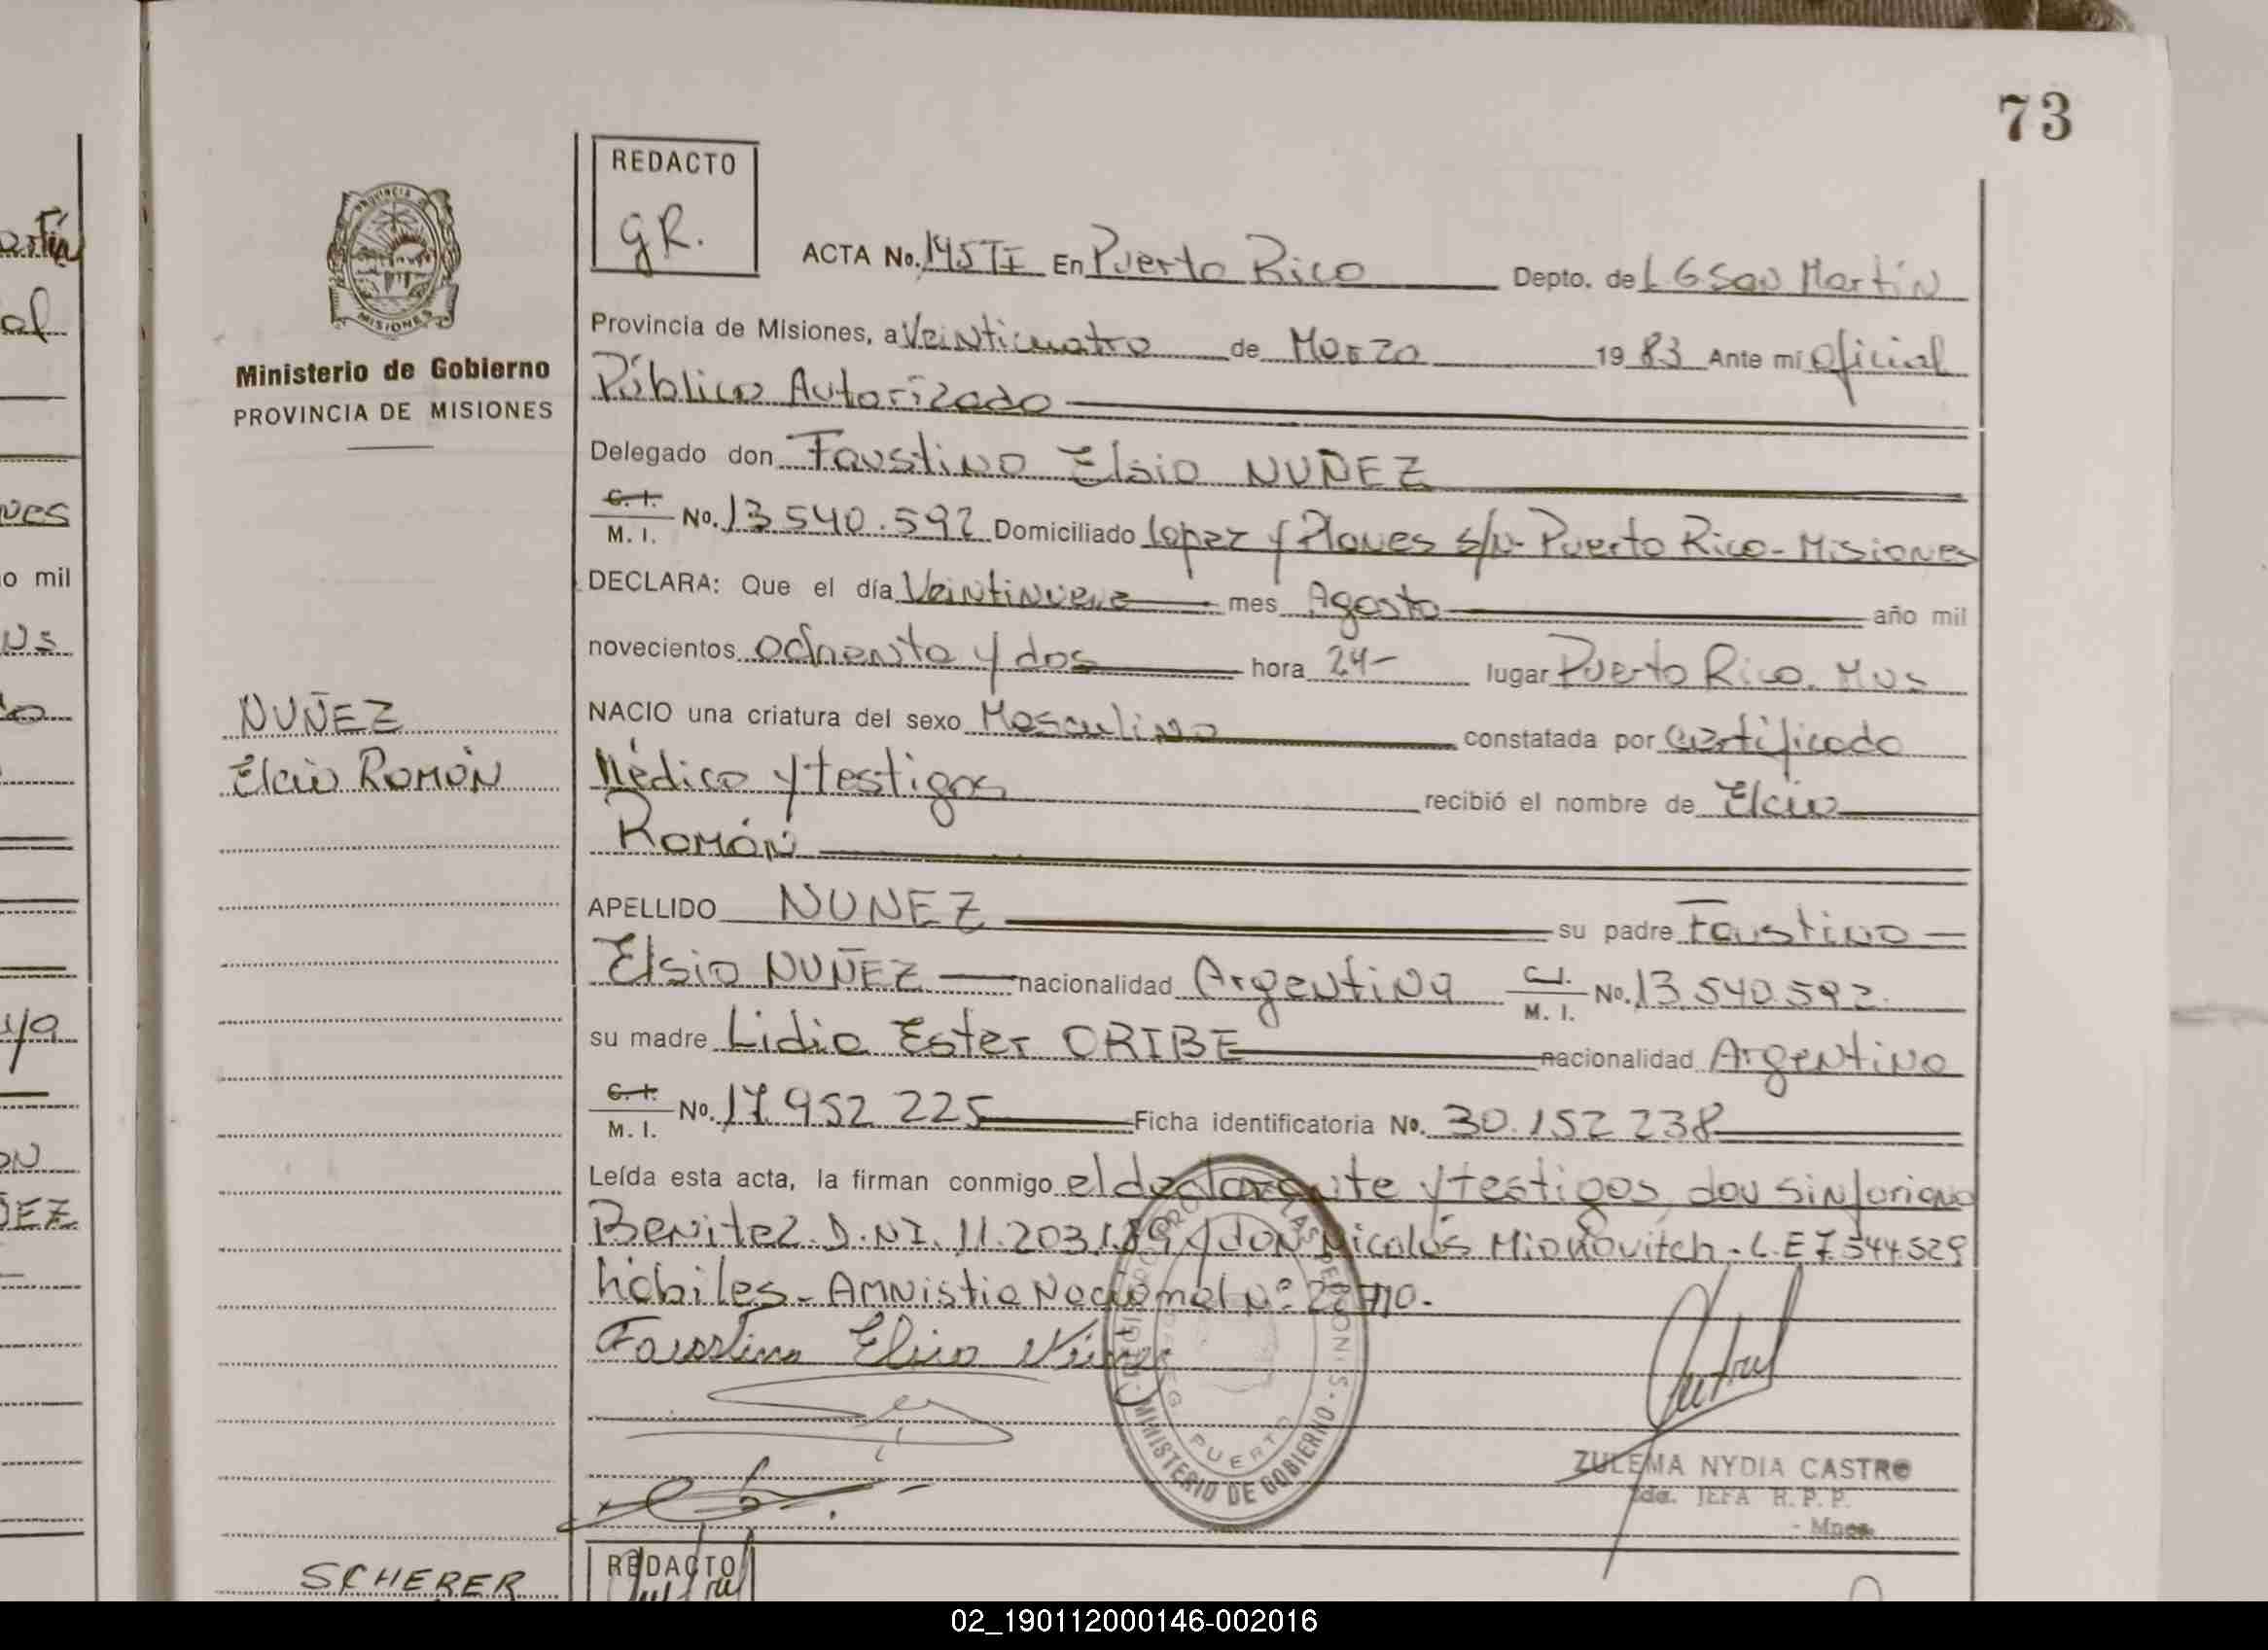 73
REDACTO
gR.
ACTA No. 145 TI En Puerto Rico Depto. de L.G. San Martín
PROVINCIA
MISIONES
Ministerio de Gobierno
PROVINCIA DE MISIONES
Provincia de Misiones, a Veinticuatro de Marzo 1983 Ante mí Oficial
Público Autorizado
Delegado don Faustino Elsio NUÑEZ
C. I.
M. I. No. 13.540.592 Domiciliado Lopez y Planes s/n- Puerto Rico - Misiones
DECLARA: Que el día Veintinueve mes Agosto año mil
novecientos ochenta y dos hora 24- lugar Puerto Rico. Mns
NACIO una criatura del sexo Masculino constatada por certificado
Médico y testigos recibió el nombre de Elcio
Román
NUÑEZ
Elcio ROMÓN
APELLIDO NUNEZ su padre Faustino
Elsio NUÑEZ nacionalidad Argentina C.I.
M. I. No. 13.540.592.
su madre Lidia Ester ORIBE nacionalidad Argentina
C. I.
M. I. No. 17.952.225 Ficha identificatoria No. 30.152.238
Leída esta acta, la firman conmigo el declarante y testigos don Sinforiano
Benitez. D.NI. 11.203.189 y don Nicolás Mionovitch - L.E 7.544.529
hábiles - Amnistia Nacional Nº 22710.
Faustino Elsio Núñez
MINISTERIO DE GOBIERNO
PUERTO
ZULEMA NYDIA CASTRO
2da. JEFA R. P. P.
- Mnes.
SCHERER
REDACTO
ves
o mil
02_190112000146-002016